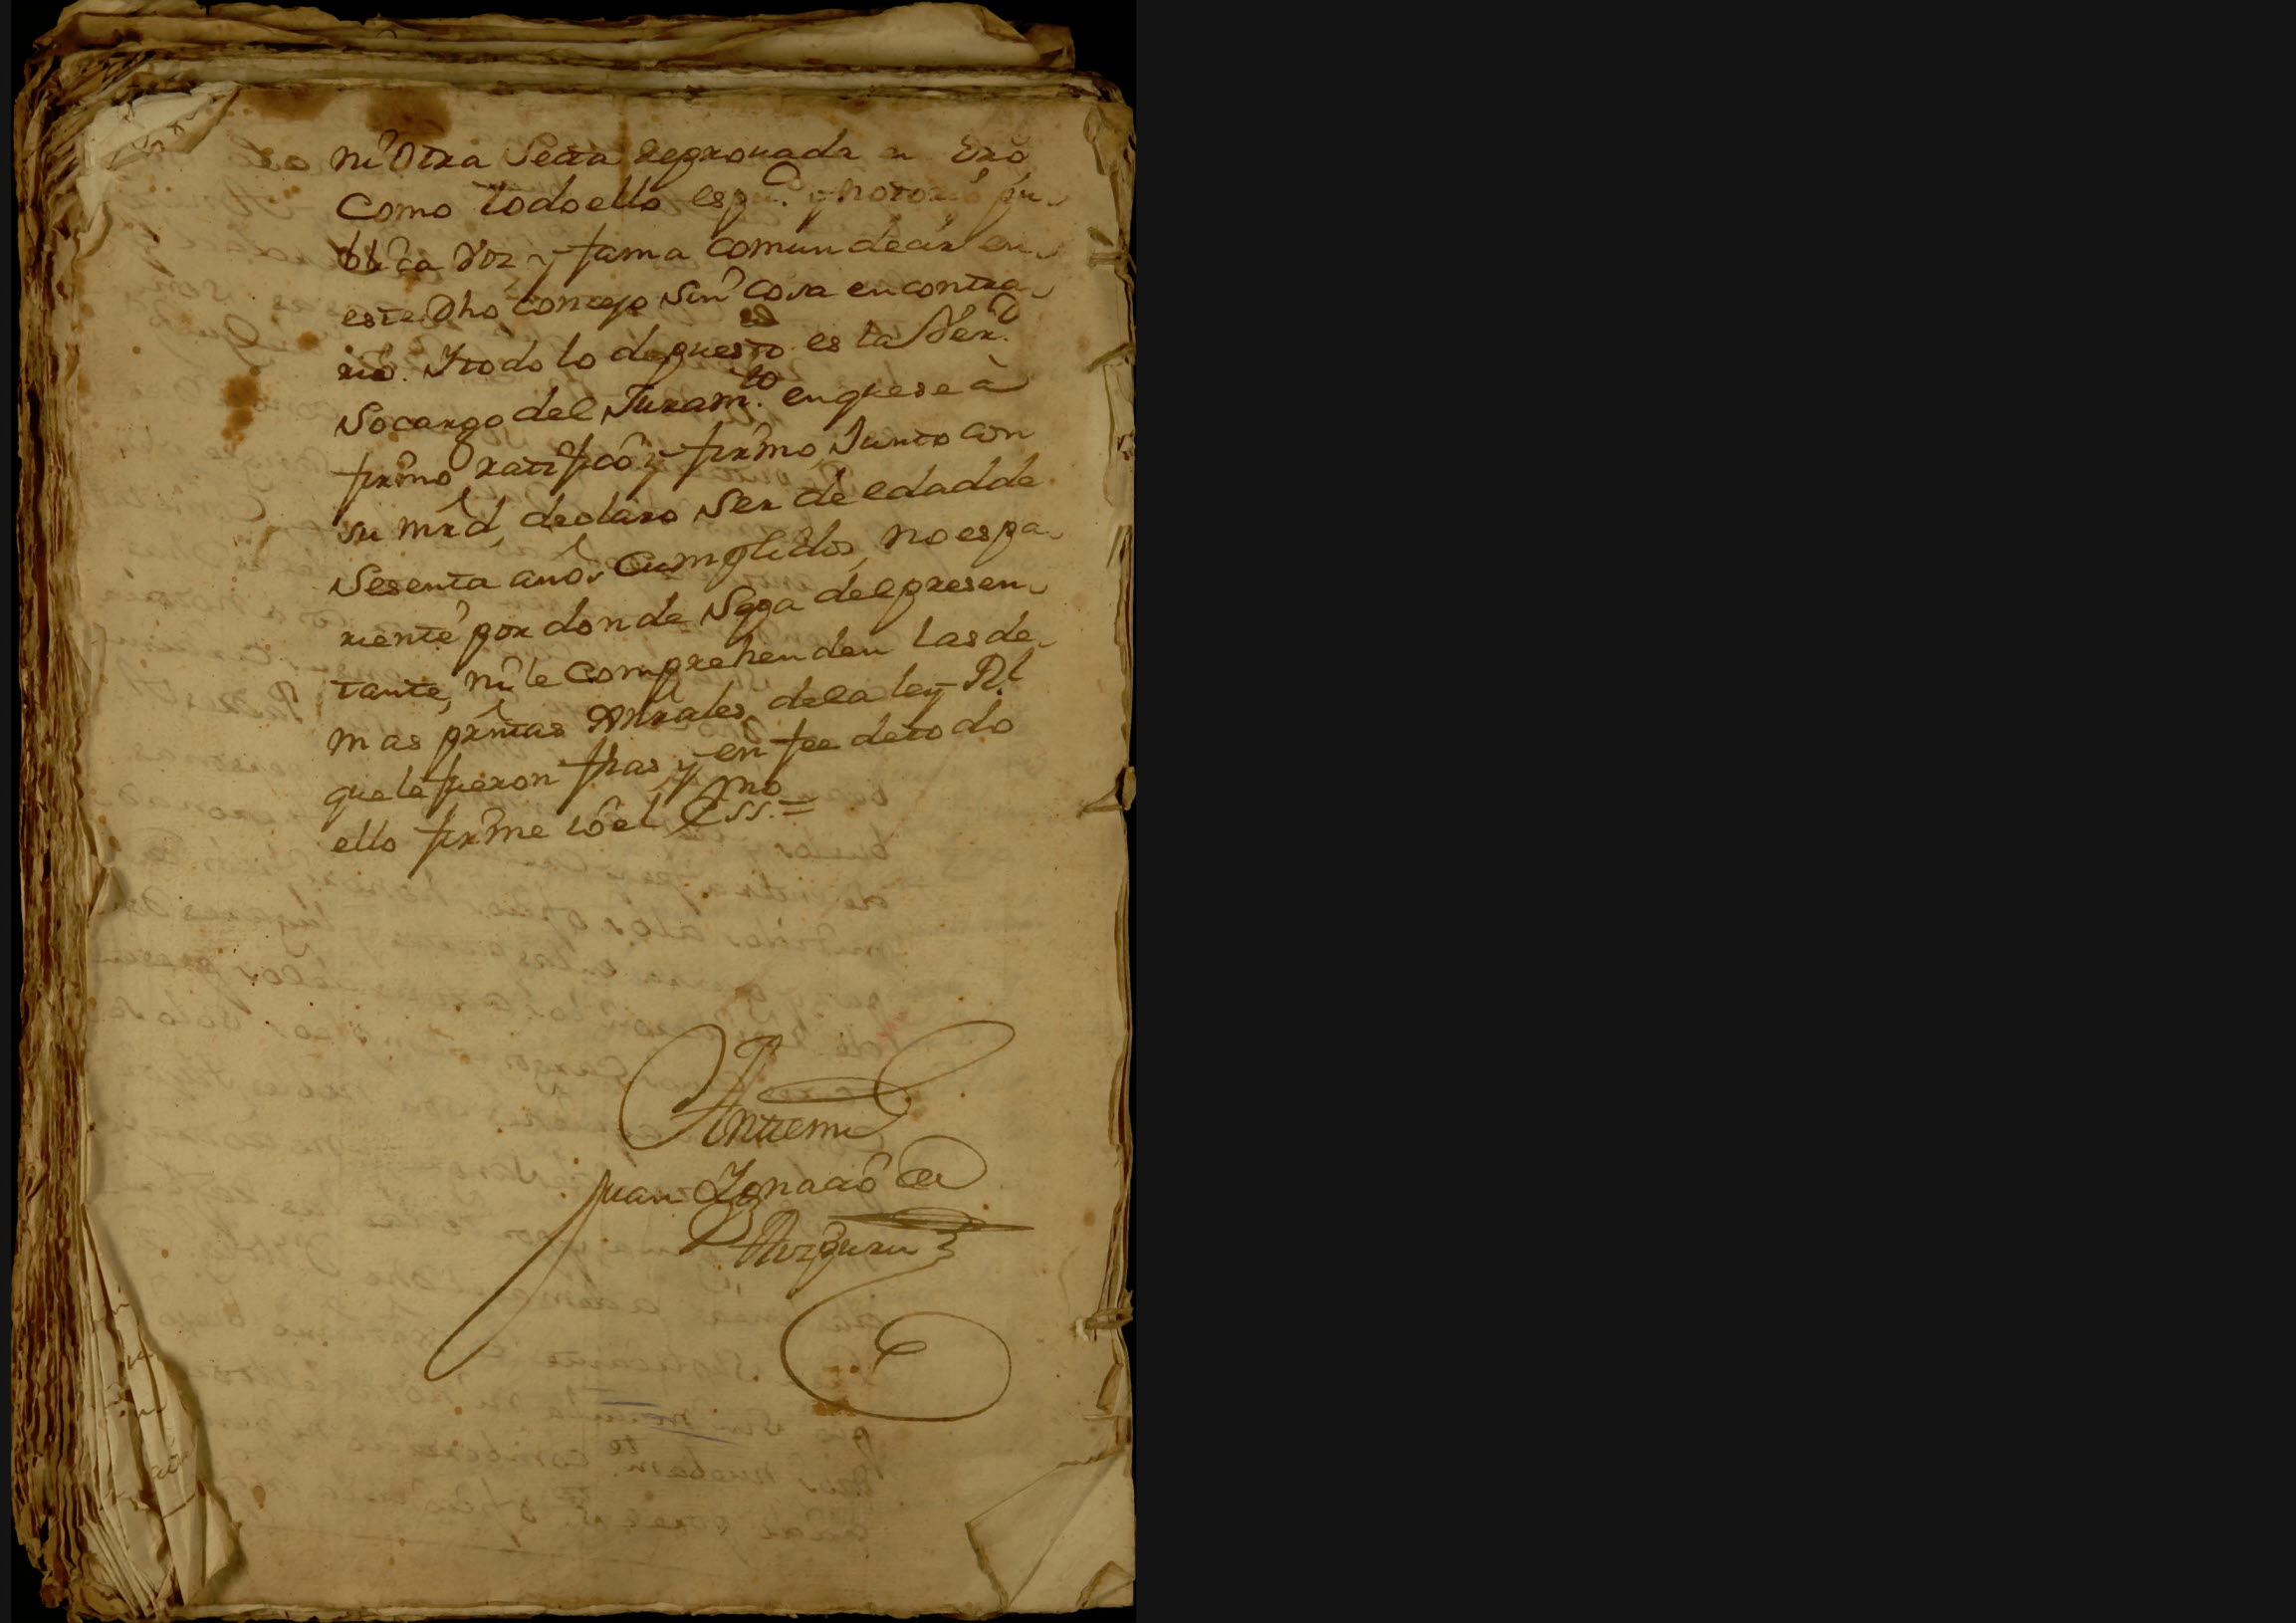 ni Otra Secta reprouada en dro
Como todo ello es pco. y notorio pu-
blica voz y fama comun decir en
este dho concejo sin cosa en contra-
rio. Y todo lo depuesto es la Verd.
so cargo del Juramto. en que se a
firmo ratificô y firmo, Junto con
su mrd, declaro ser de edad de
sesenta años cumplidos, no es pa-
riente por donde sepa del presen-
tante, ni le comprehenden las de-
mas prntas Gnrales de la ley Rl.
que le fueron fhas y en fee de todo
ello firme Yo el Essno. =
Antemi
Juan Ygnacio de